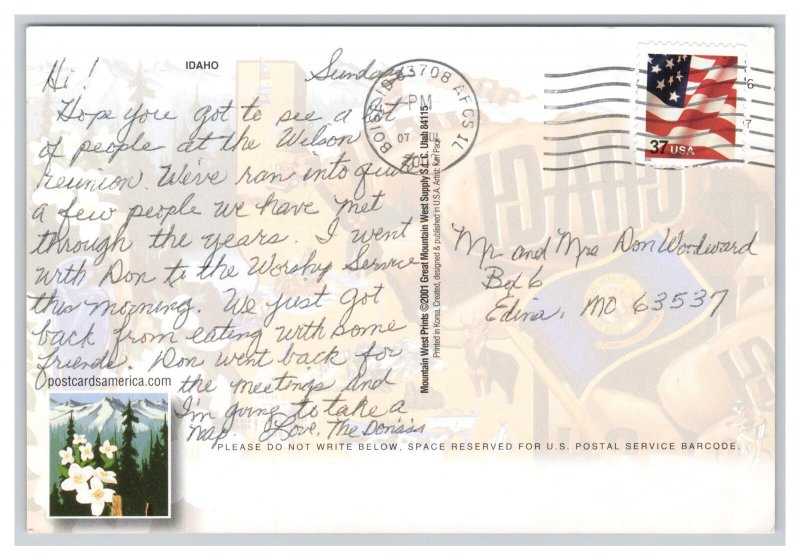 IDAHO
Hi!
Sunday
Hope you got to see a lot
of people at the Wilson
reunion. We've ran into quite
a few people we have met
through the years. I went
with Don to the Worship Service
this morning. We just got
back from eating with some
friends. Don went back for
the meetings and
I'm going to take a
nap. Love, The Dons
postcardsamerica.com
BOISE ID 83708 AFCS 1L
PM
07
37 USA
Mountain West Prints ©2001 Great Mountain West Supply S.L.C. Utah 84115
Printed in Korea. Created, designed & published in U.S.A. Artist: Kari Pack
Mr and Mrs Don Woodward
Box 6
Edina, MO 63537
IDAHO
PLEASE DO NOT WRITE BELOW, SPACE RESERVED FOR U.S. POSTAL SERVICE BARCODE.